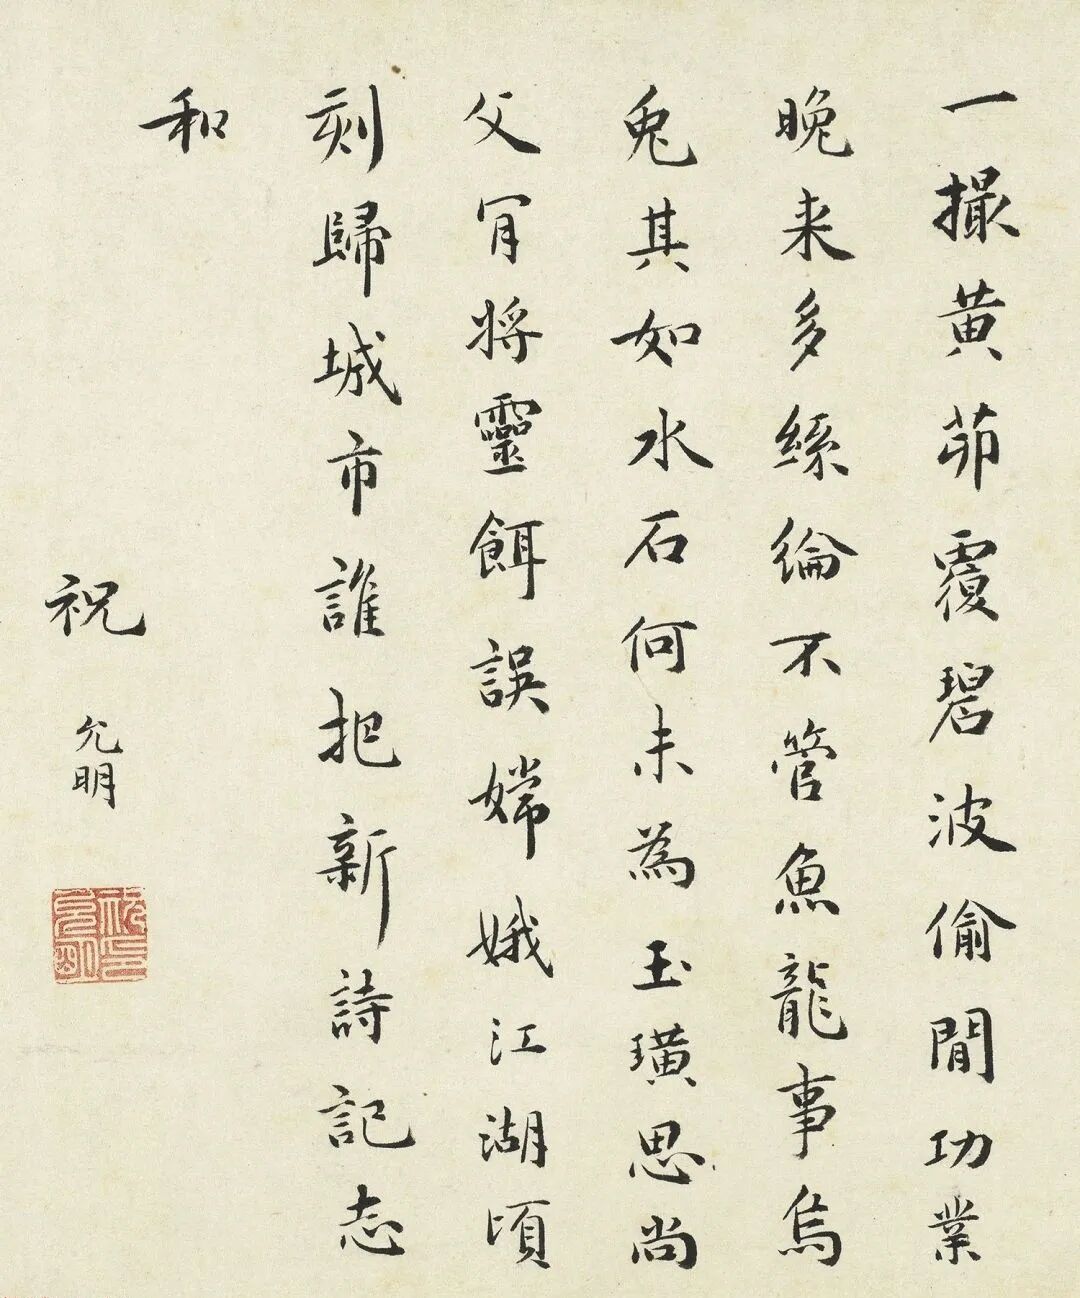 一撮黄茆覆碧波偷閒功業
晚来多絲綸不管魚龍事烏
兔其如水石何未為玉璜思尚
父肎將靈餌誤嫦娥江湖頃
刻歸城市誰把新詩記志
和
祝允明